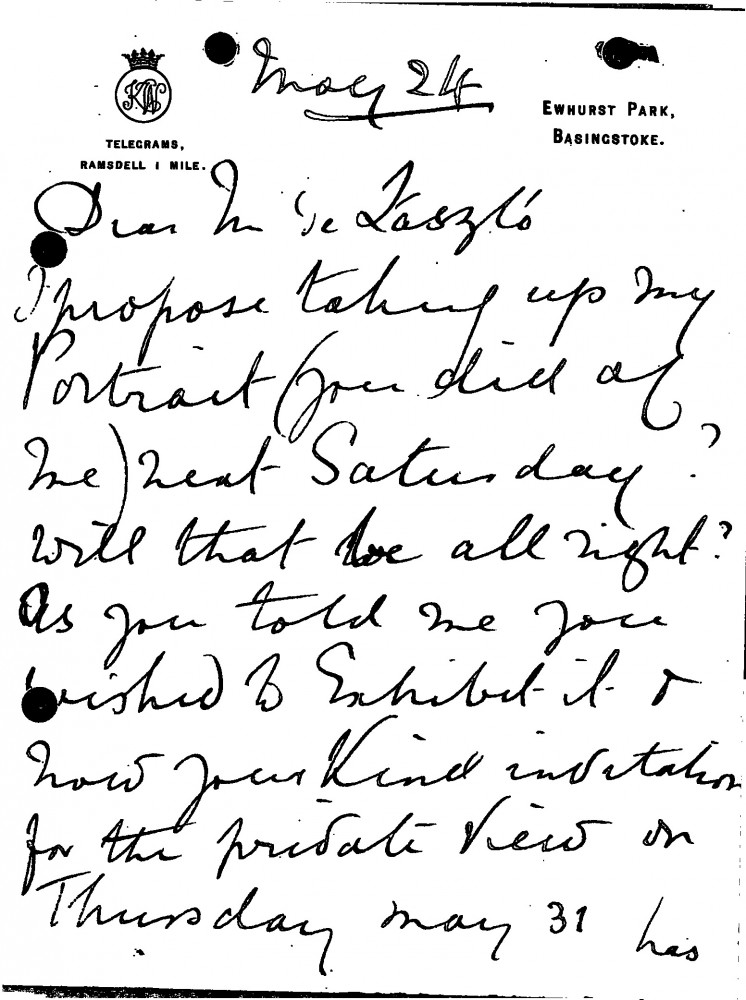 May 24
EWHURST PARK,
BASINGSTOKE.
TELEGRAMS,
RAMSDELL 1 MILE.
Dear Mr de László
I propose taking up my
Portrait (you did of
me) next Saturday?
Will that be all right?
As you told me you
wished to Exhibit it &
now your Kind invitation
for the private View on
Thursday may 31 has